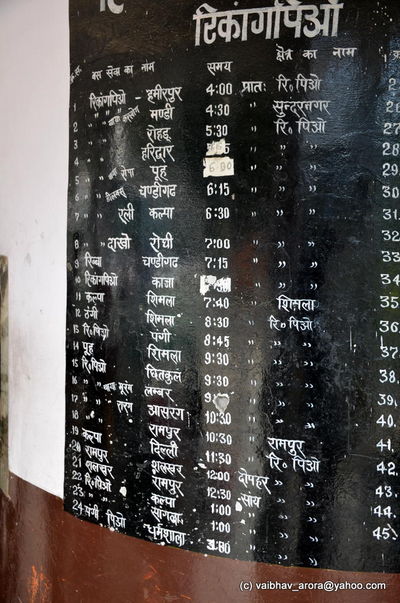 रिकांगपिओ
क्र.सं. बस सेवा का नाम समय क्षेत्र का नाम
1 रिकांगपिओ - हमीरपुर 4:00 प्रातः रि॰ पिओ
2 " " मण्डी 4:30 " सुन्दरनगर
3 " " रोहडू 5:30 " रि॰ पिओ
" हरिद्वार " "
5 " पूह 6:00 " "
6 " चण्डीगढ 6:15 " " 30
7 " एली कल्पा 6:30 " " 31
32
8 " दाखो रोघी 7:00 " " 33
9 रिब्बा चण्डीगढ 7:15 " " 34
10 रिकांगपिओ काजा " " 35
11 कल्पा शिमला 7:40 शिमला 36
12 ठंगी शिमला 8:30 रि॰ पिओ 37
13 रि॰ पिओ पंगी 8:45 " " 38
14 पूह शिमला 9:30 " " 39
15 रि॰ पिओ छितकुल 9:30 " " 40
16 " मूरंग लम्बर 9: " "
17 " आसरंग 10:30 " " 41
18 " रामपुर 10:30 रामपुर 42
19 कल्पा दिल्ली 11:30 " रि॰ पिओ 43
20 रामपुर शलखर 12:00 दोपहर " " 44
21 शलखर रामपुर 12:30 सायं " " 45
22 रि॰ पिओ कल्पा 1:00 " "
23 " " सांगला 1:00 " "
24 पंगी, पिओ धर्मशाला " "
(c) vaibhav_arora@yahoo.com